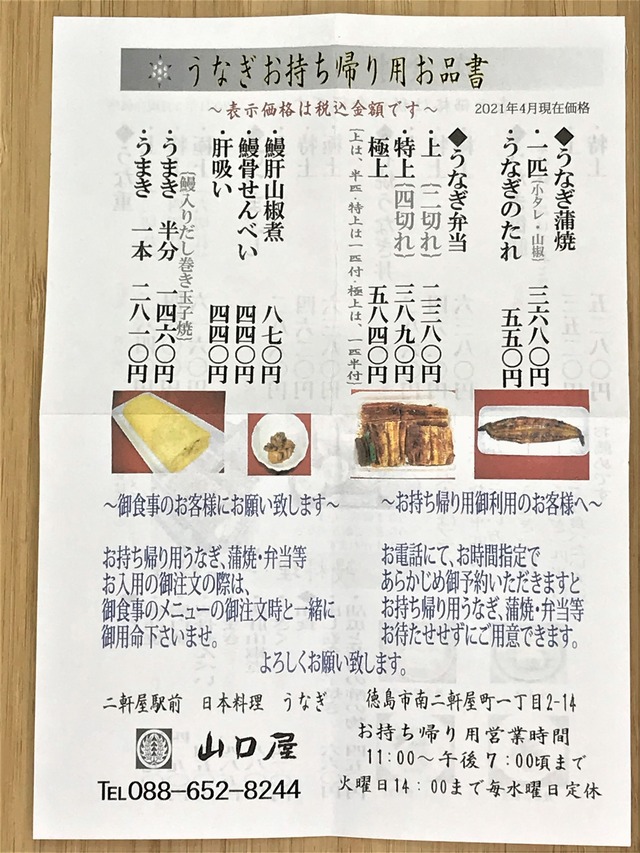 うなぎお持ち帰り用お品書
～表示価格は税込金額です～
2021年4月現在価格
◆うなぎ蒲焼
・一匹(小タレ・山椒) 三六八〇円
・うなぎのたれ 五五〇円
◆うなぎ弁当
・上(二切れ) 二三八〇円
・特上(四切れ) 三八九〇円
・極上 五八四〇円
(上は、半匹・特上は一匹付・極上は、一匹半付)
・鰻肝山椒煮 八七〇円
・鰻骨せんべい 四四〇円
・肝吸い 四四〇円
(鰻入りだし巻き玉子焼)
・うまき 半分 一四六〇円
・うまき 一本 二八一〇円
～お持ち帰り用御利用のお客様へ～
お電話にて、お時間指定で
あらかじめ御予約いただきますと
お持ち帰り用うなぎ、蒲焼・弁当等
お待たせせずにご用意できます。
～御食事のお客様にお願い致します～
お持ち帰り用うなぎ、蒲焼・弁当等
お入用の御注文の際は、
御食事のメニューの御注文時と一緒に
御用命下さいませ。
よろしくお願い致します。
二軒屋駅前 日本料理 うなぎ
山口屋
TEL088-652-8244
徳島市南二軒屋町一丁目2-14
お持ち帰り用営業時間
11:00～午後7:00頃まで
火曜日14:00まで毎水曜日定休